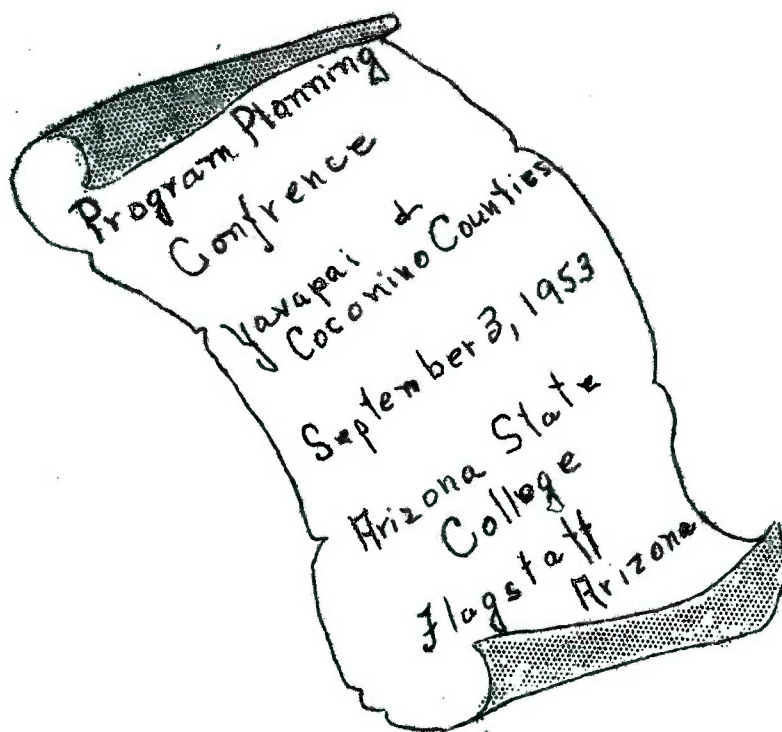 Program Planning
Confrence
Yavapai &
Coconino Counties
September 3, 1953
Arizona State
College
Flagstaff
Arizona